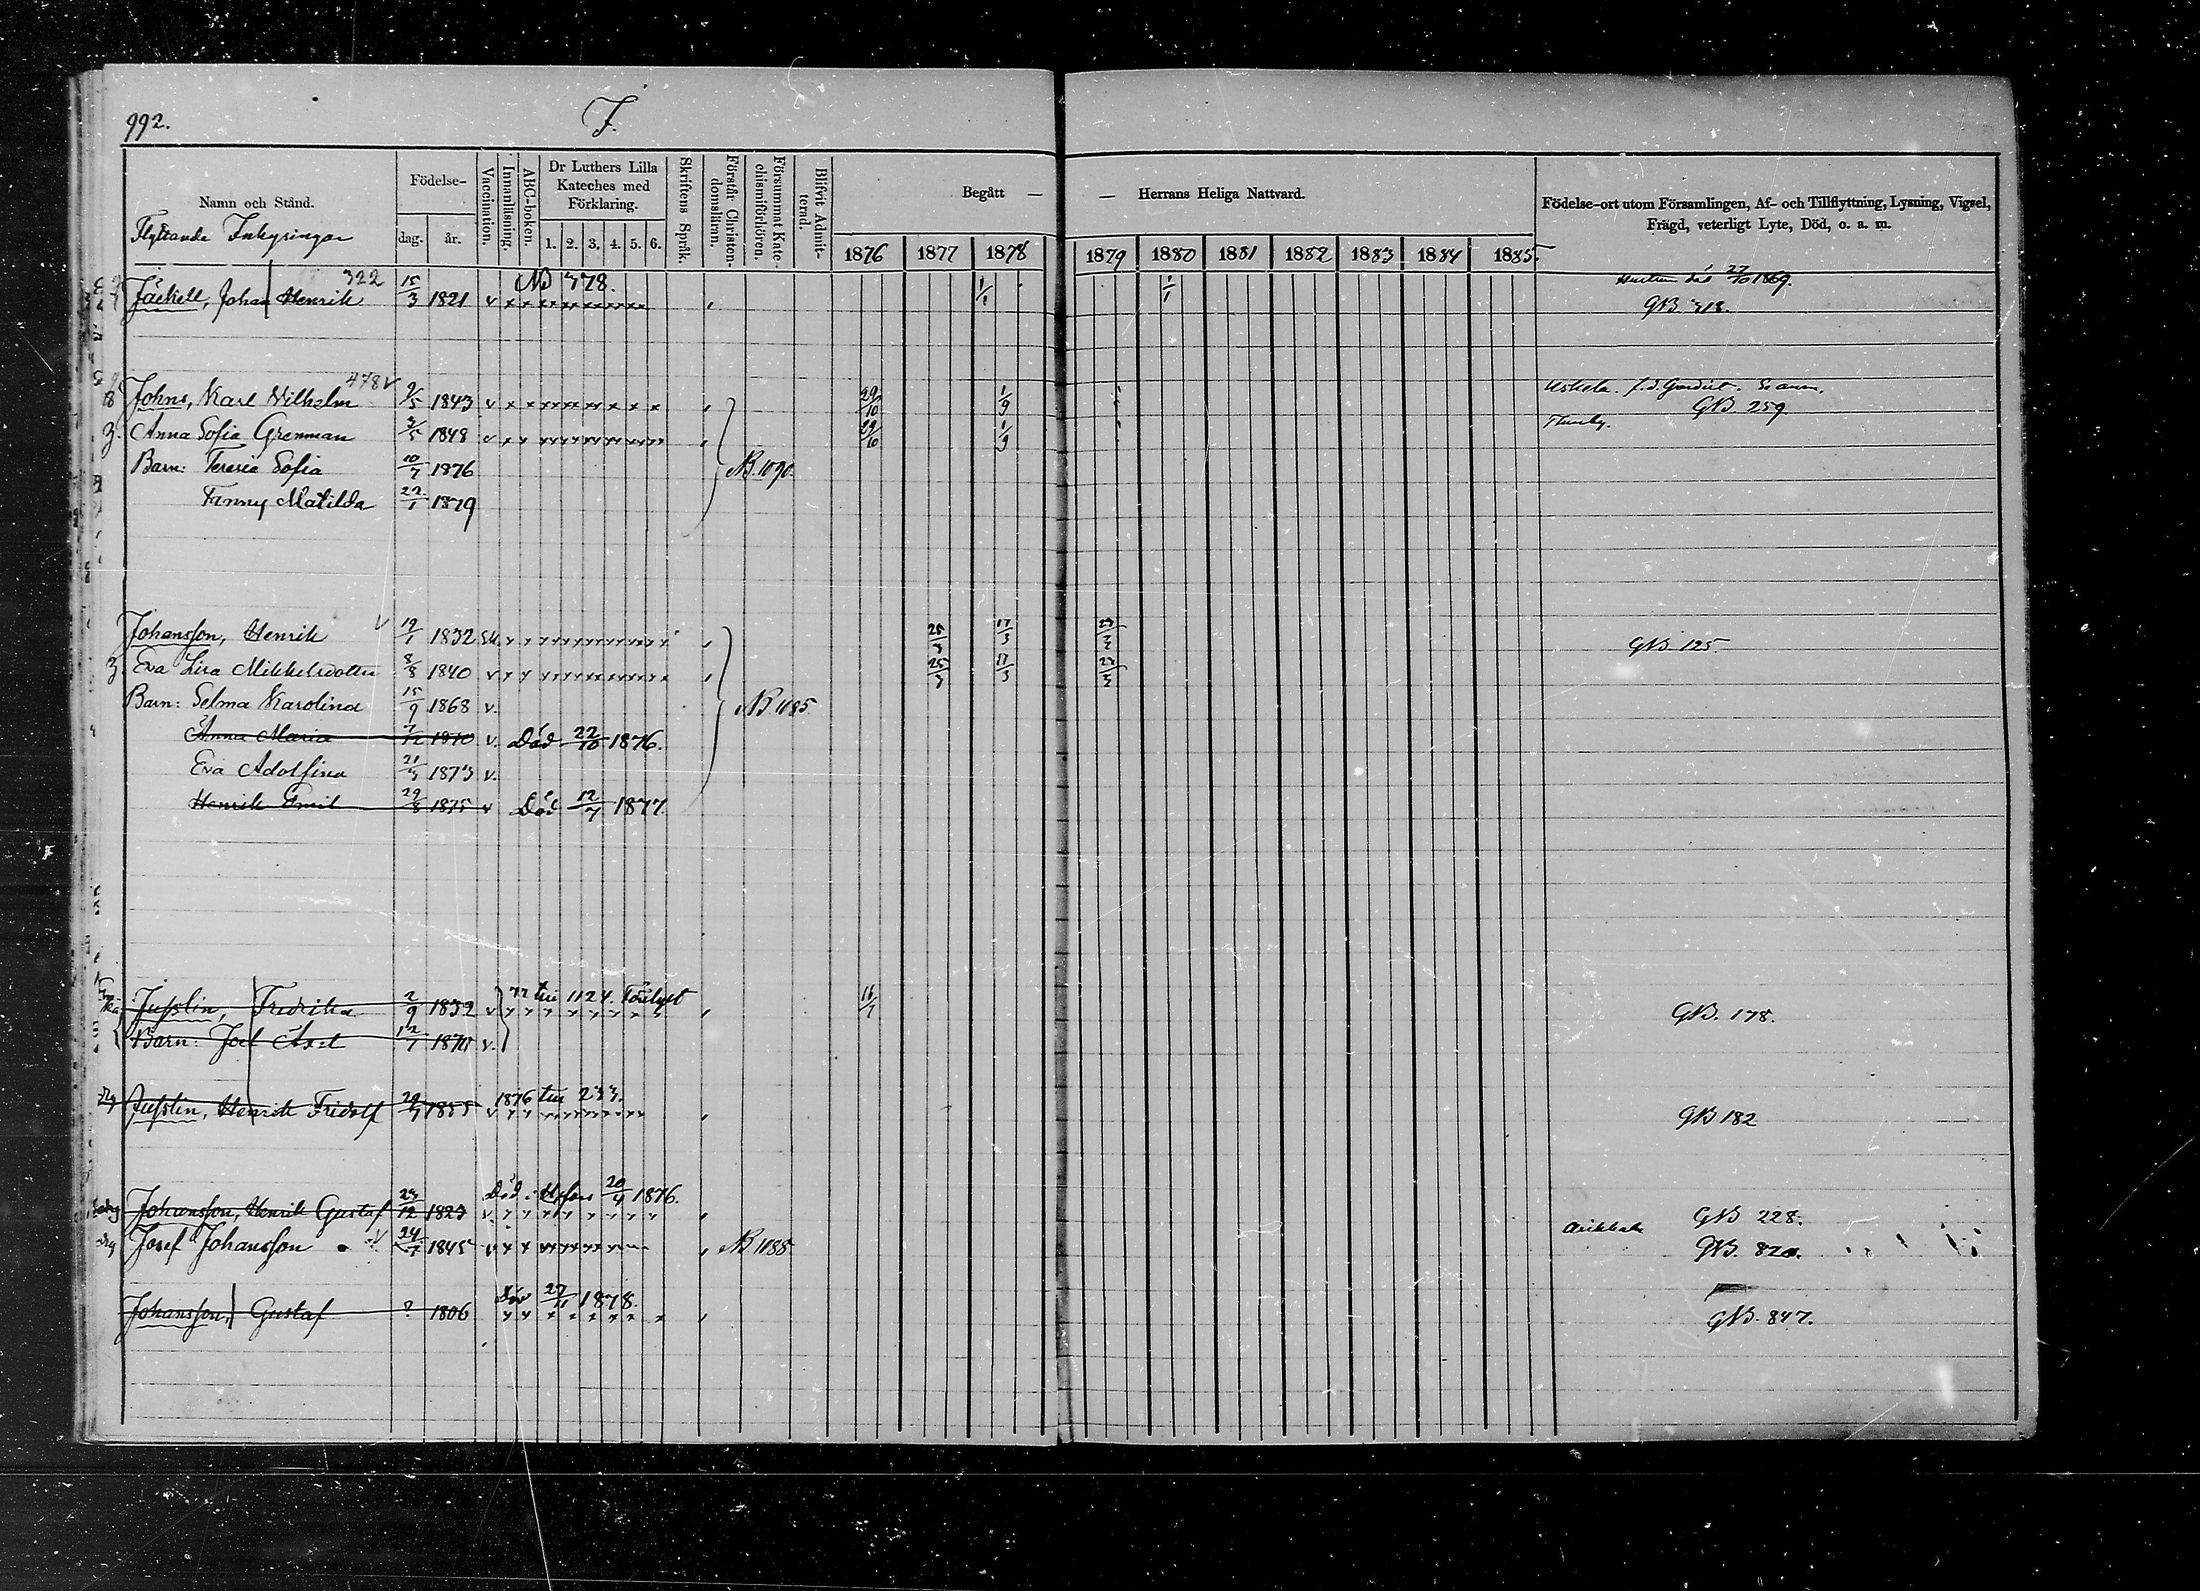 992. J.
Namn och Stånd. Födelse- dag. år. Vaccination. Innanläsning. ABC-boken. Dr Luthers Lilla Kateches med Förklaring. 1. 2. 3. 4. 5. 6. Skriftens Språk. Förstår Christendomsläran. Försummat Katechismiförhören. Blifvit Admitterad. Begått — — Herrans Heliga Nattvard. Födelse-ort utom Församlingen, Af- och Tillflyttning, Lysning, Vigsel, Frägd, veterligt Lyte, Död, o. a. m.
1876 1877 1878 1879 1880 1881 1882 1883 1884 1885.
Flyttande Inhysingar
322 NB 778. Hustrun död 27/10 1869.
Jäckell, Johan Henrik 15/3 1821 v 1/1 1/1 GNB. 318.
478 v
Johns, Karl Vilhelm 9/5 1843 v 29/10 1/9 GNB. 259
Anna Sofia Grenman 3/5 1848 v 29/10 1/9 Thusby.
Barn: Teresia Sofia 10/7 1876 NB. 1090.
Fanny Matilda 22/1 1879
Johansson, Henrik 19/1 1832 25/3 17/3 23/3 GNB 125.
Eva Lisa Mikkelsdotter 8/8 1840 v 25/3 17/3 23/3
Barn: Selma Karolina 15/9 1868 v. NB 1085
Anna Maria 7/12 1870 v. Död 22/10 1876.
Eva Adolfina 21/3 1873 v.
Henrik Emil 29/8 1875 v Död 12/7 1877.
77 till 1124.
Jusslin, Fredrika 2/9 1832 v 16/7 GNB. 178.
Barn: Joel Axel 12/7 1870 v.
1876 till 233.
Jusslin, Henrik Fridolf 29/7 1835 v GNB 182
Död i H:fors 20/4 1876.
Johansson, Henrik Gustaf 23/12 1823 v GNB 228.
Josef Johansson 24/7 1845 v NB 1085 GNB. 820.
Död 27/11 1878.
Johansson, Gustaf ? 1806 GNB. 847.